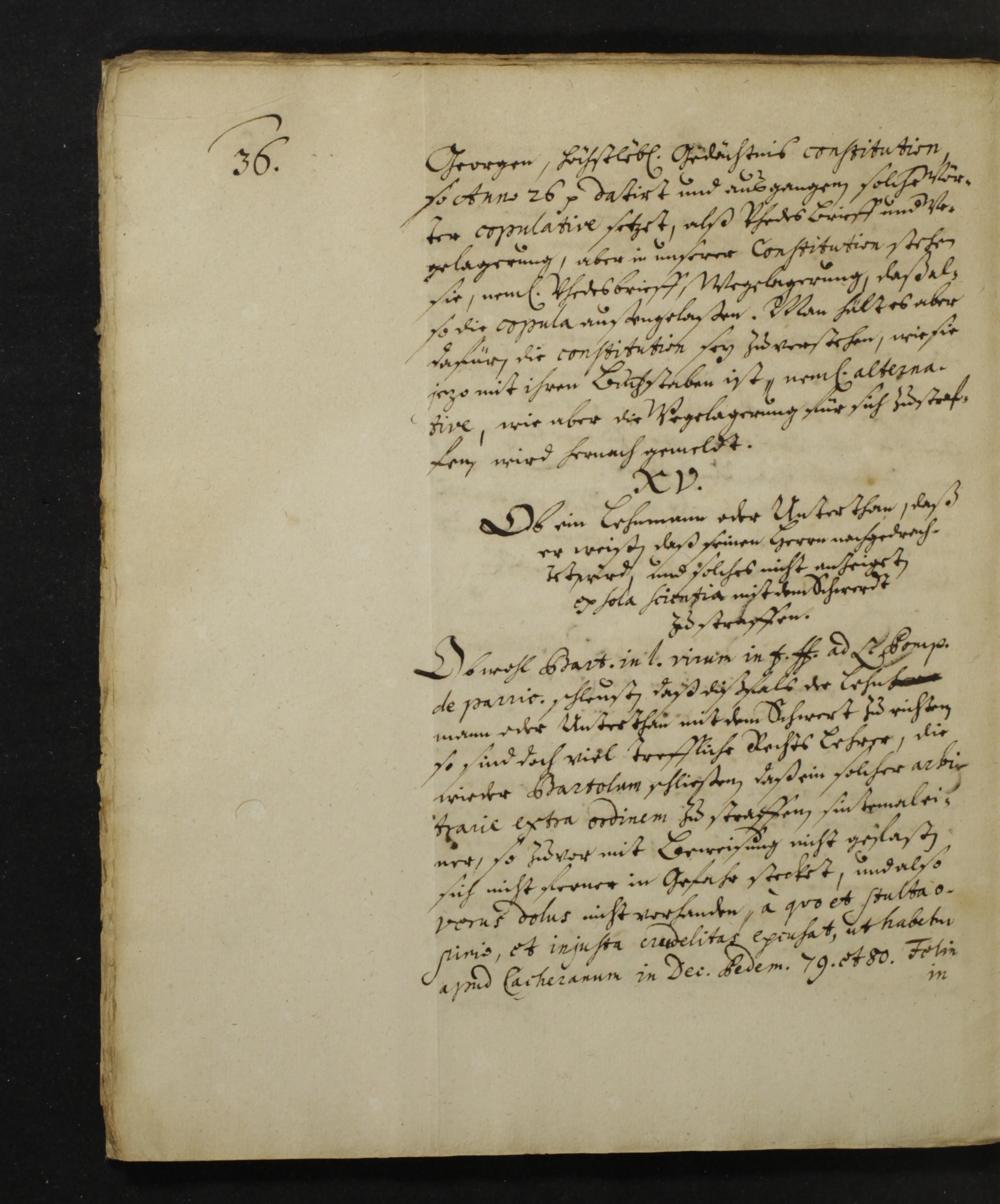 36.
Georgen, höchstlöbl. Gedächtnis constitution,
so Anno 26 p datirt und ausgangen solche Wör-
ter copulative setzet, alß Vhedes brieff und We-
gelagerung, aber in unserer Constitution stehen
sie, neml. Vhedesbrieff, Wegelagerung, daß al-
so die copula aussengelaßen. Man hält es aber
dafür, die constitution sey zu verstehen, wie sie
jezo mit ihren Buchstaben ist, neml. alterna-
tive, wie aber die Wegelagerung für sich zustraf-
fen, wird hernach gemeldt.
XV.
Ob ein Lehnmann oder Unterthan, daß
er weiß, daß seinen Herrn nachgedrach-
tet wird, und solches nicht anzeiget,
ex sola scientia mit dem Schwerdt
zu straffen.
Obwohl Bart. in l. virum in f. ff. ad L. Pomp.
de parric. schleust, daß dißfals der Lehn
mann oder Unterthan mit dem Schwert zu richten
so sind doch viel treffliche Rechts Lehrer, die
wieder Bartolum schließen, daß ein solcher arbi-
trarie extra ordinem zu straffen, sintemal ei-
ner, so zuvor mit Beweisung nicht gefast,
sich nicht ferner in Gefahr stecket, und also
verus dolus nicht vorhanden, à quo et stulta o-
pinio, et injusta credelitas excusat, ut habetur
apud Cacheranum in Dec. Pedem. 79. et 80. Felin
in